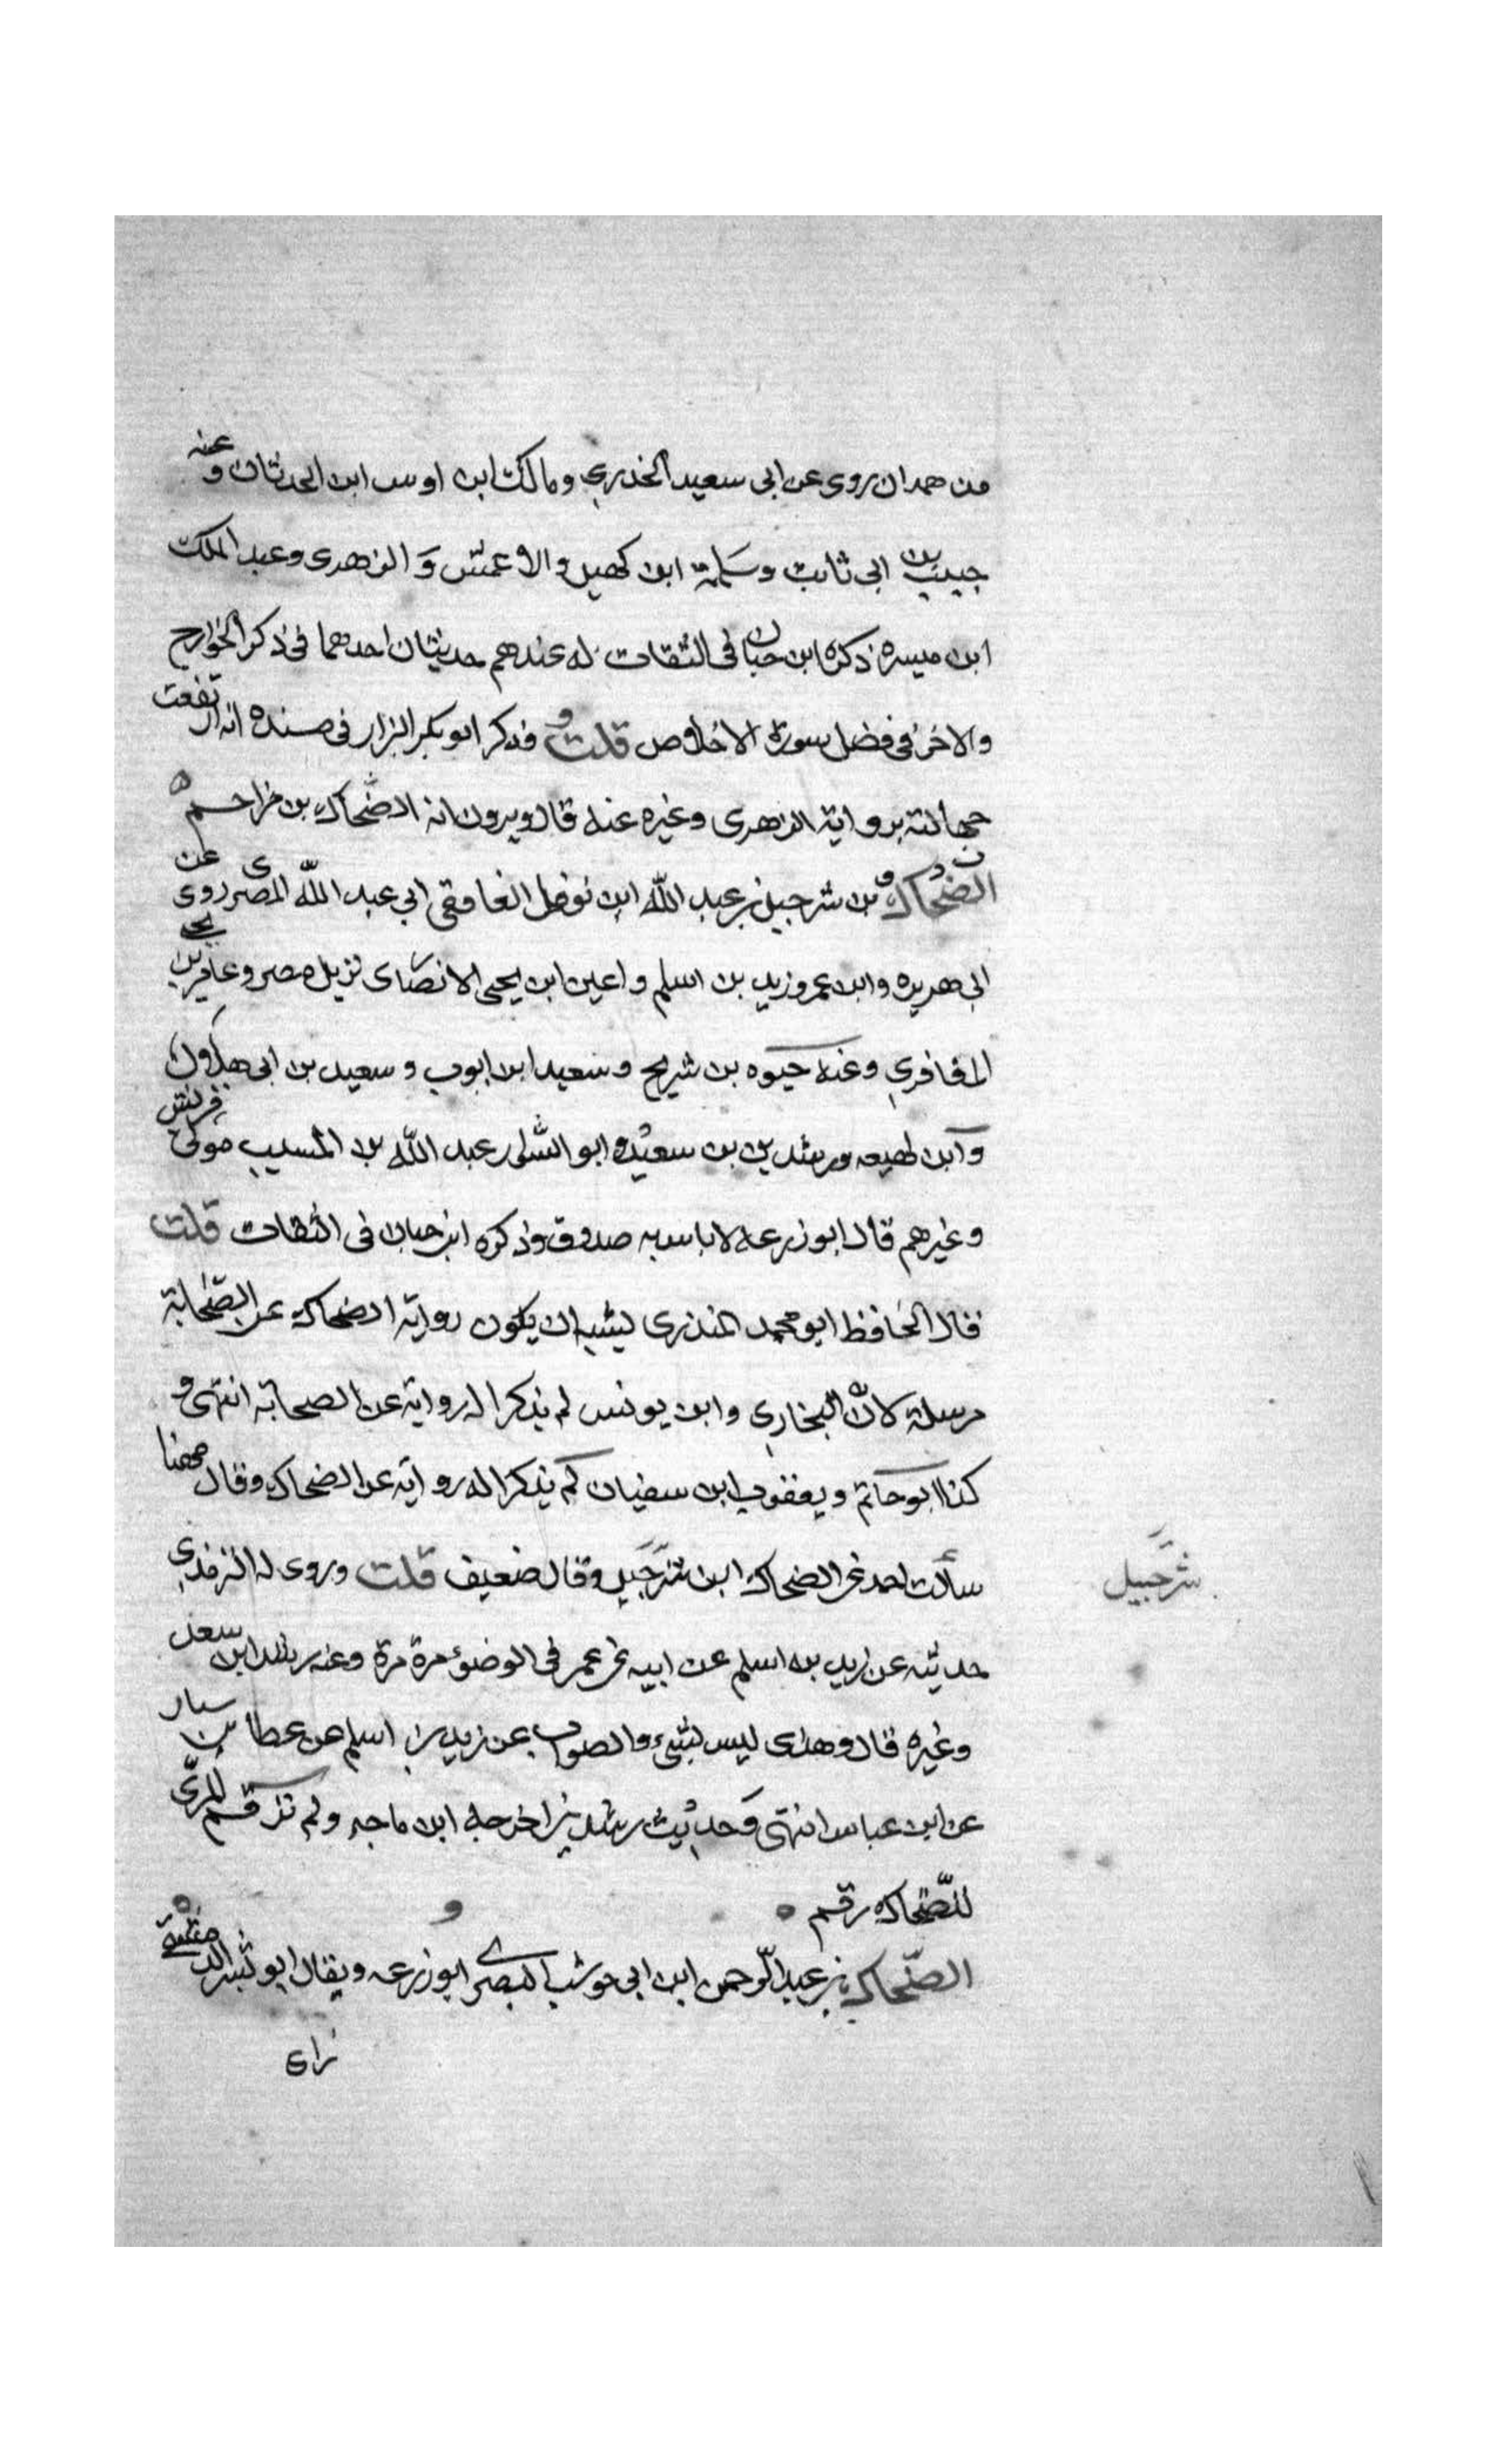 من همدان روى عن ابى سعيد الخذري ومالك ابن اوس ابن الحدثان وعنه
حبيب بن ابى ثابت وسلمة ابن كهيل والاعمش و الزهرى وعبد الملك
ابن ميسره ذكره ابن حبان فى الثقات له عندهم حديثان احدهما فى ذكر الخوارج
والاخر فى فضل سورة الاخلاص قلت وذكر ابو بكر البزار فى مسنده انه ارتفعت
جهالته برواية الزهرى وغيره عنه قال ويرون انه الضحاك بن مزاحم ه
الضحاك بن شرحبيل بن عبد الله ابن نوفل الغافقى ابي عبد الله المصرى روى عن
ابى هريره وابن عمر وزيد بن اسلم واعين ابن يحيى الانصارى نزيل مصر وعامر بن يحي
المفافري وعنه حيوه بن شريح وسعيد ابن ايوب وسعيد بن ابى هلال
وابن لهيعه ورشدين بن سعيد وابو السوار عبد الله بن المسيب مولى قريش
وغيرهم قال ابو زرعه لا باس به صدوق وذكره ابن حبان فى الثقات قلت
قال الحافظ ابو محمد المنذرى ليشبه ان يكون رواية الضحاك عن الصحابة
مرسلة لانّ البخاري وابن يونس لم يذكرا له رواية عن الصحابة انتهى و
كذا ابو حاتم ويعقوب ابن سفيان لم يذكرا له رواية عن الضحاك وقال مهنا
سألت احمد عن الضحاك ابن شرحبيل وقال ضعيف قلت وروى له الترمذي
شرحبيل
حديثه عن زيد بن اسلم عن ابيه عن عمر فى الوضوء مرة مرة وعنه رشد ابن سعد
وغيره قال وهذى ليس بشىء والصواب عن زيد بن اسلم عن عطا بن سيار
عن ابن عباس انتهى وحديث رشدين اخرجه ابن ماجه ولم يرقم المزّى
للضّحاك رقم ه
الضّحاك بن عبد الرّحمن ابن ابى حوشب البصرى ابو زرعه ويقال ابو بشر الدمشقى
راى